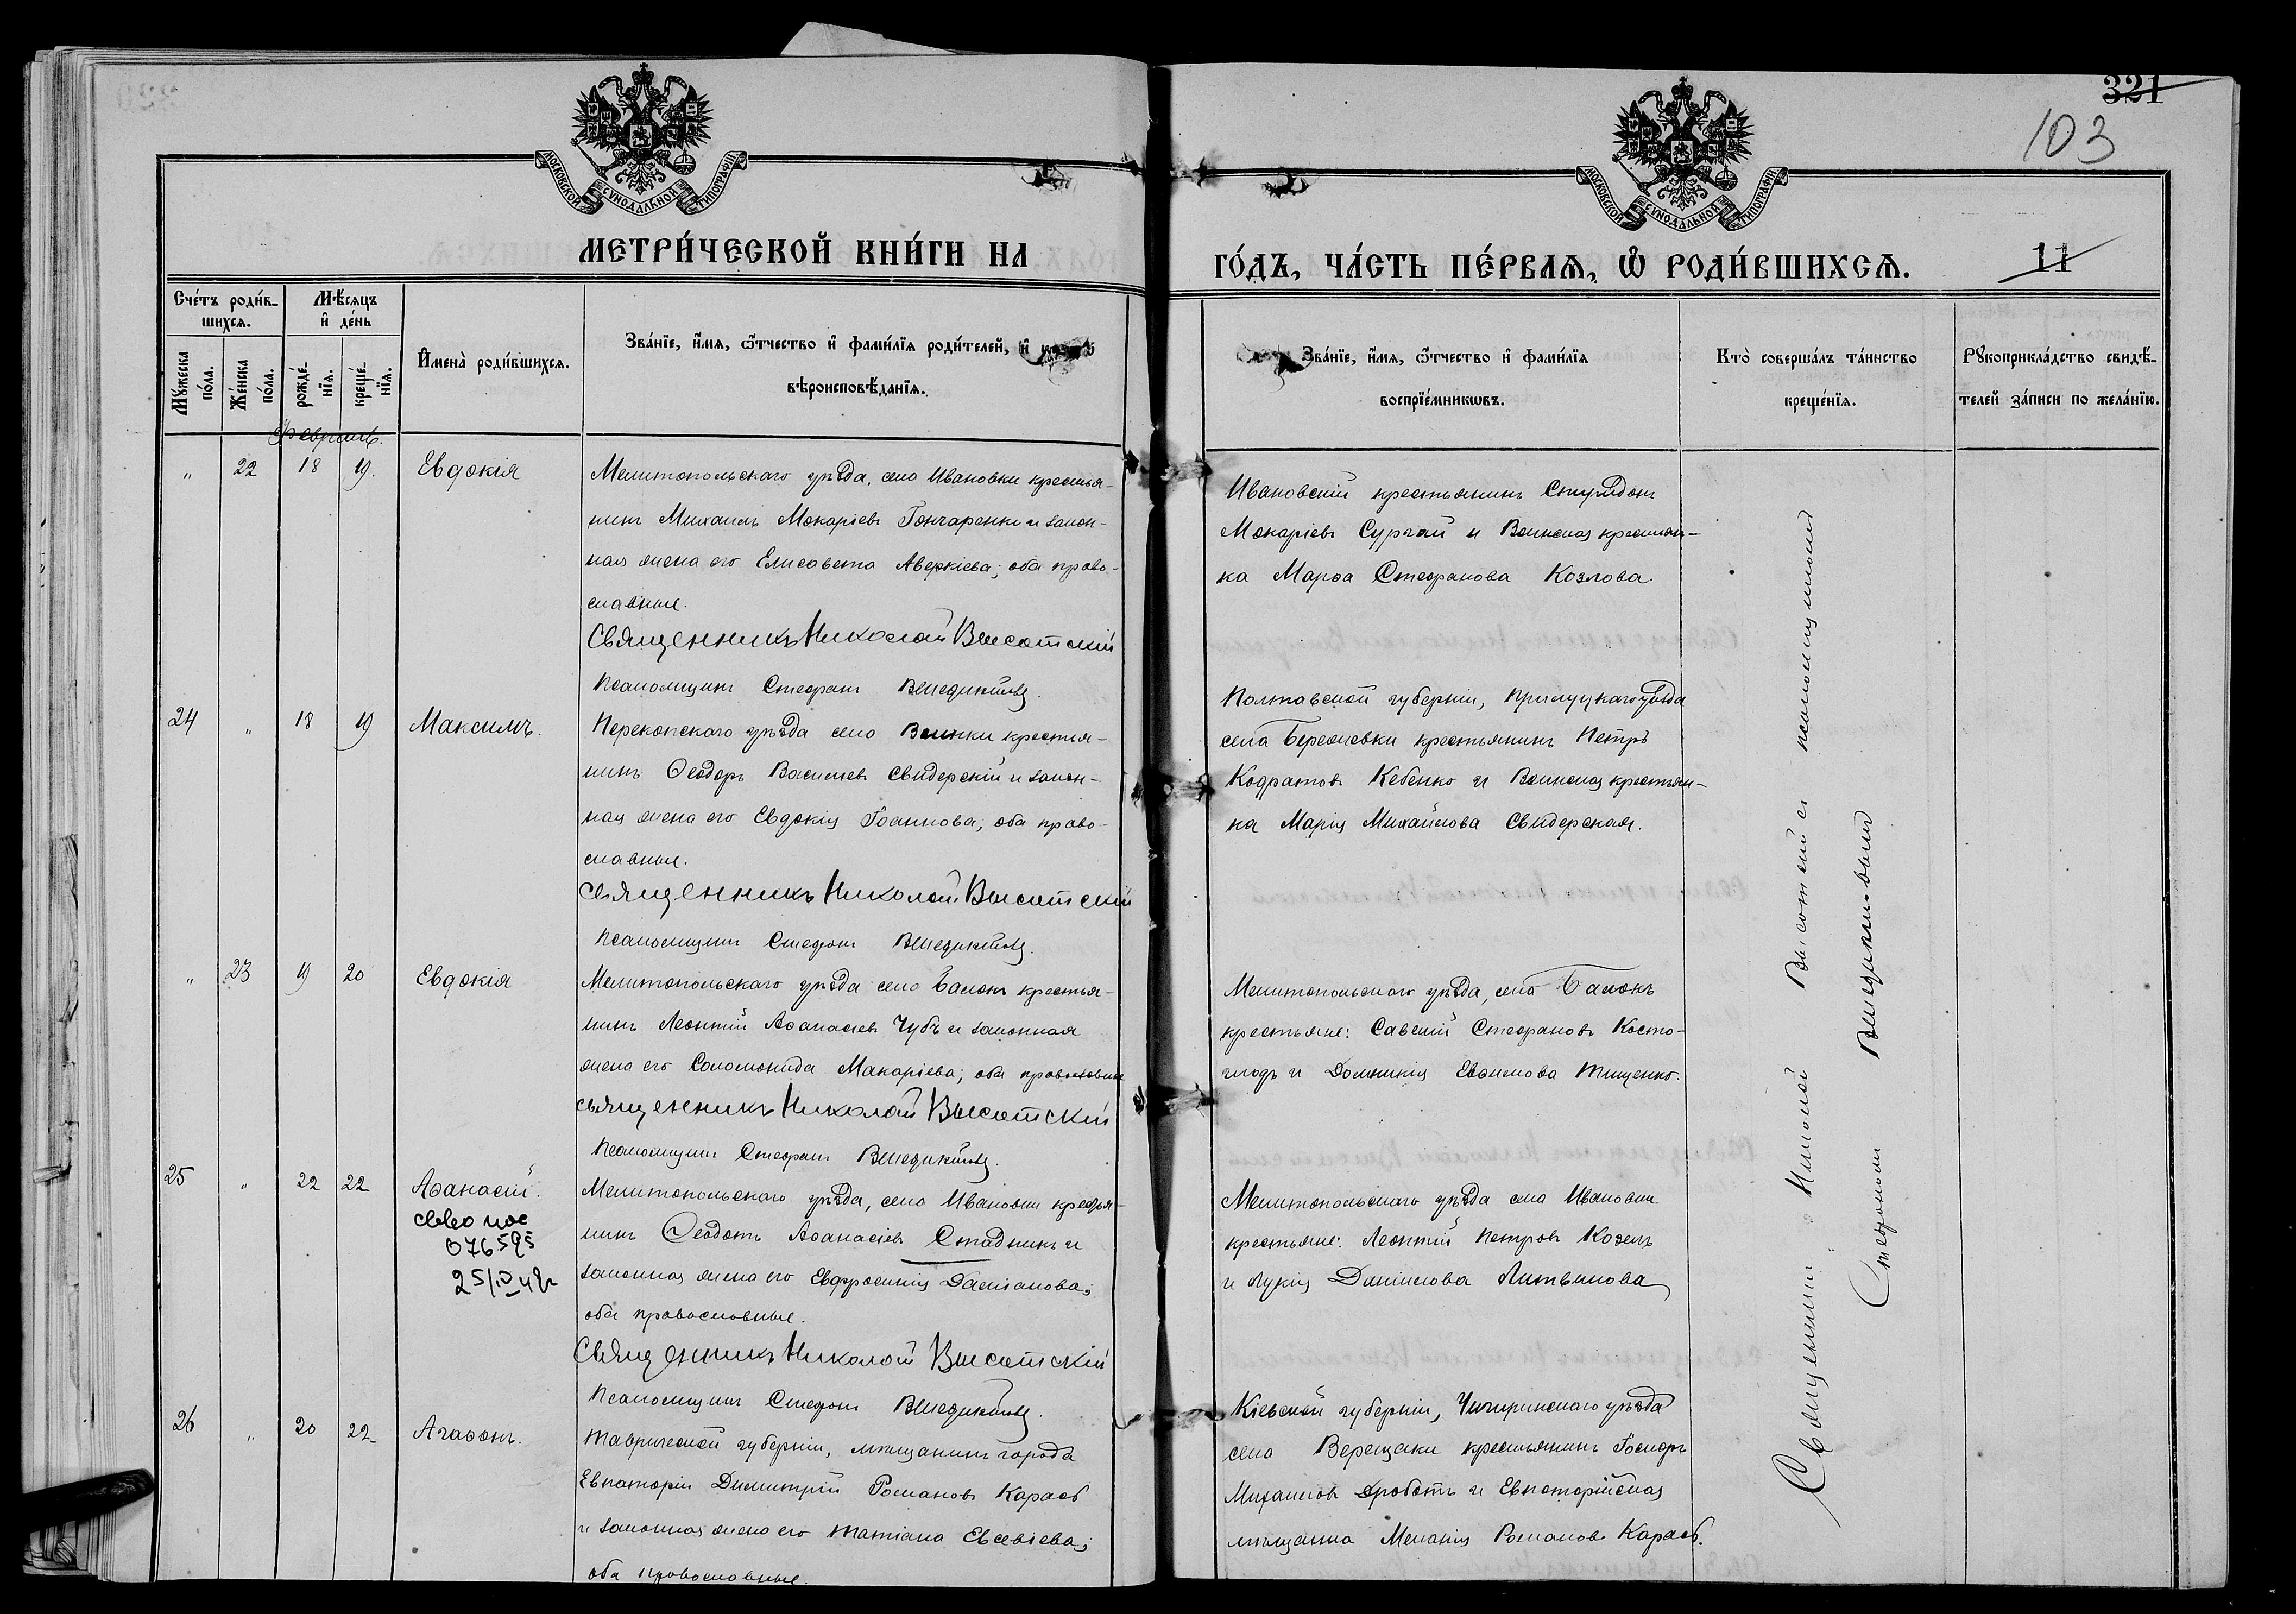 321
103
МОСКОВСКОЙ СУНОДАЛЬНОЙ ТИПОГРАФІИ
МОСКОВСКОЙ СУНОДАЛЬНОЙ ТИПОГРАФІИ
МЕТРИ́ЧЕСКОЙ КНИ́ГИ НА
ГО́ДЪ, ЧА́СТЬ ПЕ́РВАѦ, Ѽ РОДИ́ВШИХСѦ.
11
Сче́тъ роди́в-
шихсѧ.
Мѣ́сяцъ
и҆ де́нь
Мꙋжеска по́ла.
Же́нска по́ла.
рожде́-
нїѧ.
креще́-
нїѧ.
И҆мена̀ роди́вшихсѧ.
Зва́нїе, и҆́мѧ, ѻ҆́тчество и҆ фами́лїѧ роди́телей, и҆
вѣроисповѣ́данїѧ.
Зва́нїе, и҆́мѧ, ѻ҆́тчество и҆ фами́лїѧ
воспрїе́мникѡвъ.
Кто̀ соверша́лъ та́инство
креще́нїѧ.
Рꙋкоприкла́дство свидѣ́-
телей за́писи по жела́нїю.
Февраль.
" 22 18 19. Евдокія
Мелитопольскаго уѣзда, села Ивановки крестья-
нинъ Михаилъ Макаріевъ Гончаренко и закон-
ная жена его Елисавета Аверкіева; оба право-
славные.
Священникъ Николай Высотскій
Псаломщикъ Стефанъ Венедиктовъ.
Ивановскій крестьянинъ Спиридонъ
Макаріевъ Сургай и Воинская крестьян-
ка Марѳа Стефанова Козлова.
24 " 18 19 Максимъ.
Перекопскаго уѣзда села Воинки крестья-
нинъ Ѳеодоръ Васильевъ Свидерскій и закон-
ная жена его Евдокія Іоаннова; оба право-
славные.
Священникъ Николай Высотскій
Псаломщикъ Стефанъ Венедиктовъ.
Полтавской губерніи, Прилуцкаго уѣзда
села Березовки крестьянинъ Петръ
Кодратовъ Кебенко и Воинская крестьян-
ка Марія Михайлова Свидерская.
" 23 19 20 Евдокія
Мелитопольскаго уѣзда села Балокъ крестья-
нинъ Леонтій Аѳанасіевъ Чубъ и законная
жена его Соломонида Макаріева; оба православные
Священникъ Николай Высотскій
Псаломщикъ Стефанъ Венедиктовъ.
Мелитопольскаго уѣзда, села Балокъ
крестьяне: Савелій Стефановъ Косто-
глодъ и Домникія Евѳимова Тищенко.
25 " 22 22 Аѳанасій.
25/IV 42
Мелитопольскаго уѣзда, села Ивановки крестья-
нинъ Ѳеодотъ Аѳанасіевъ Стадникъ и
законная жена его Евфросинія Даміанова;
оба православные.
Священникъ Николай Высотскій
Псаломщикъ Стефанъ Венедиктовъ.
Мелитопольскаго уѣзда села Ивановки
крестьяне: Леонтій Петровъ Козелъ
и Лукія Даніилова Литвинова
26 " 20 22 Агаѳонъ.
Таврической губерніи, мѣщанинъ города
Евпаторіи Димитрій Романовъ Карась
и законная жена его Татіана Евсевіева;
оба православные.
Кіевской губерніи, Чигиринскаго уѣзда
села Верещаки крестьянинъ Іосифъ
Михаиловъ Дроботъ и Евпаторійская
мѣщанка Меланія Романова Карась.
Священникъ Николай Высотскій съ псаломщикомъ
Стефаномъ Венедиктовымъ